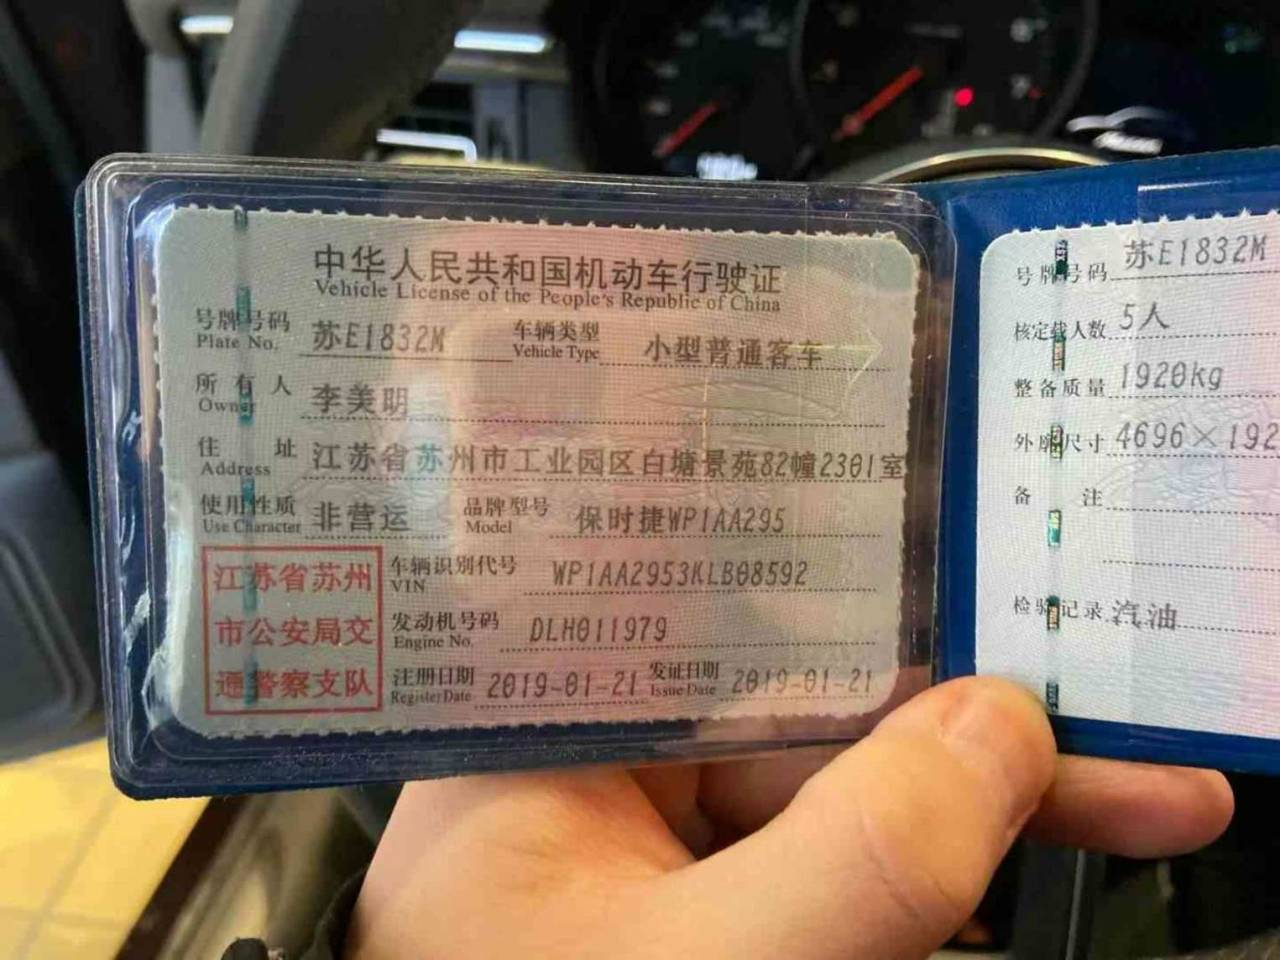 中华人民共和国机动车行驶证
Vehicle License of the People's Republic of China
号牌号码 苏E1832M 车辆类型 小型普通客车
Plate No. Vehicle Type
所有人 李美明
Owner
住址 江苏省苏州市工业园区白塘景苑82幢2301室
Address
使用性质 非营运 品牌型号 保时捷WP1AA295
Use Character Model
江苏省苏州
市公安局交
通警察支队
车辆识别代号 WP1AA2953KLB08592
VIN
发动机号码 DLH011979
Engine No.
注册日期 2019-01-21 发证日期 2019-01-21
Register Date Issue Date
号牌号码 苏E1832M
核定载人数 5人
整备质量 1920kg
外廓尺寸 4696×192
备注
检验记录 汽油